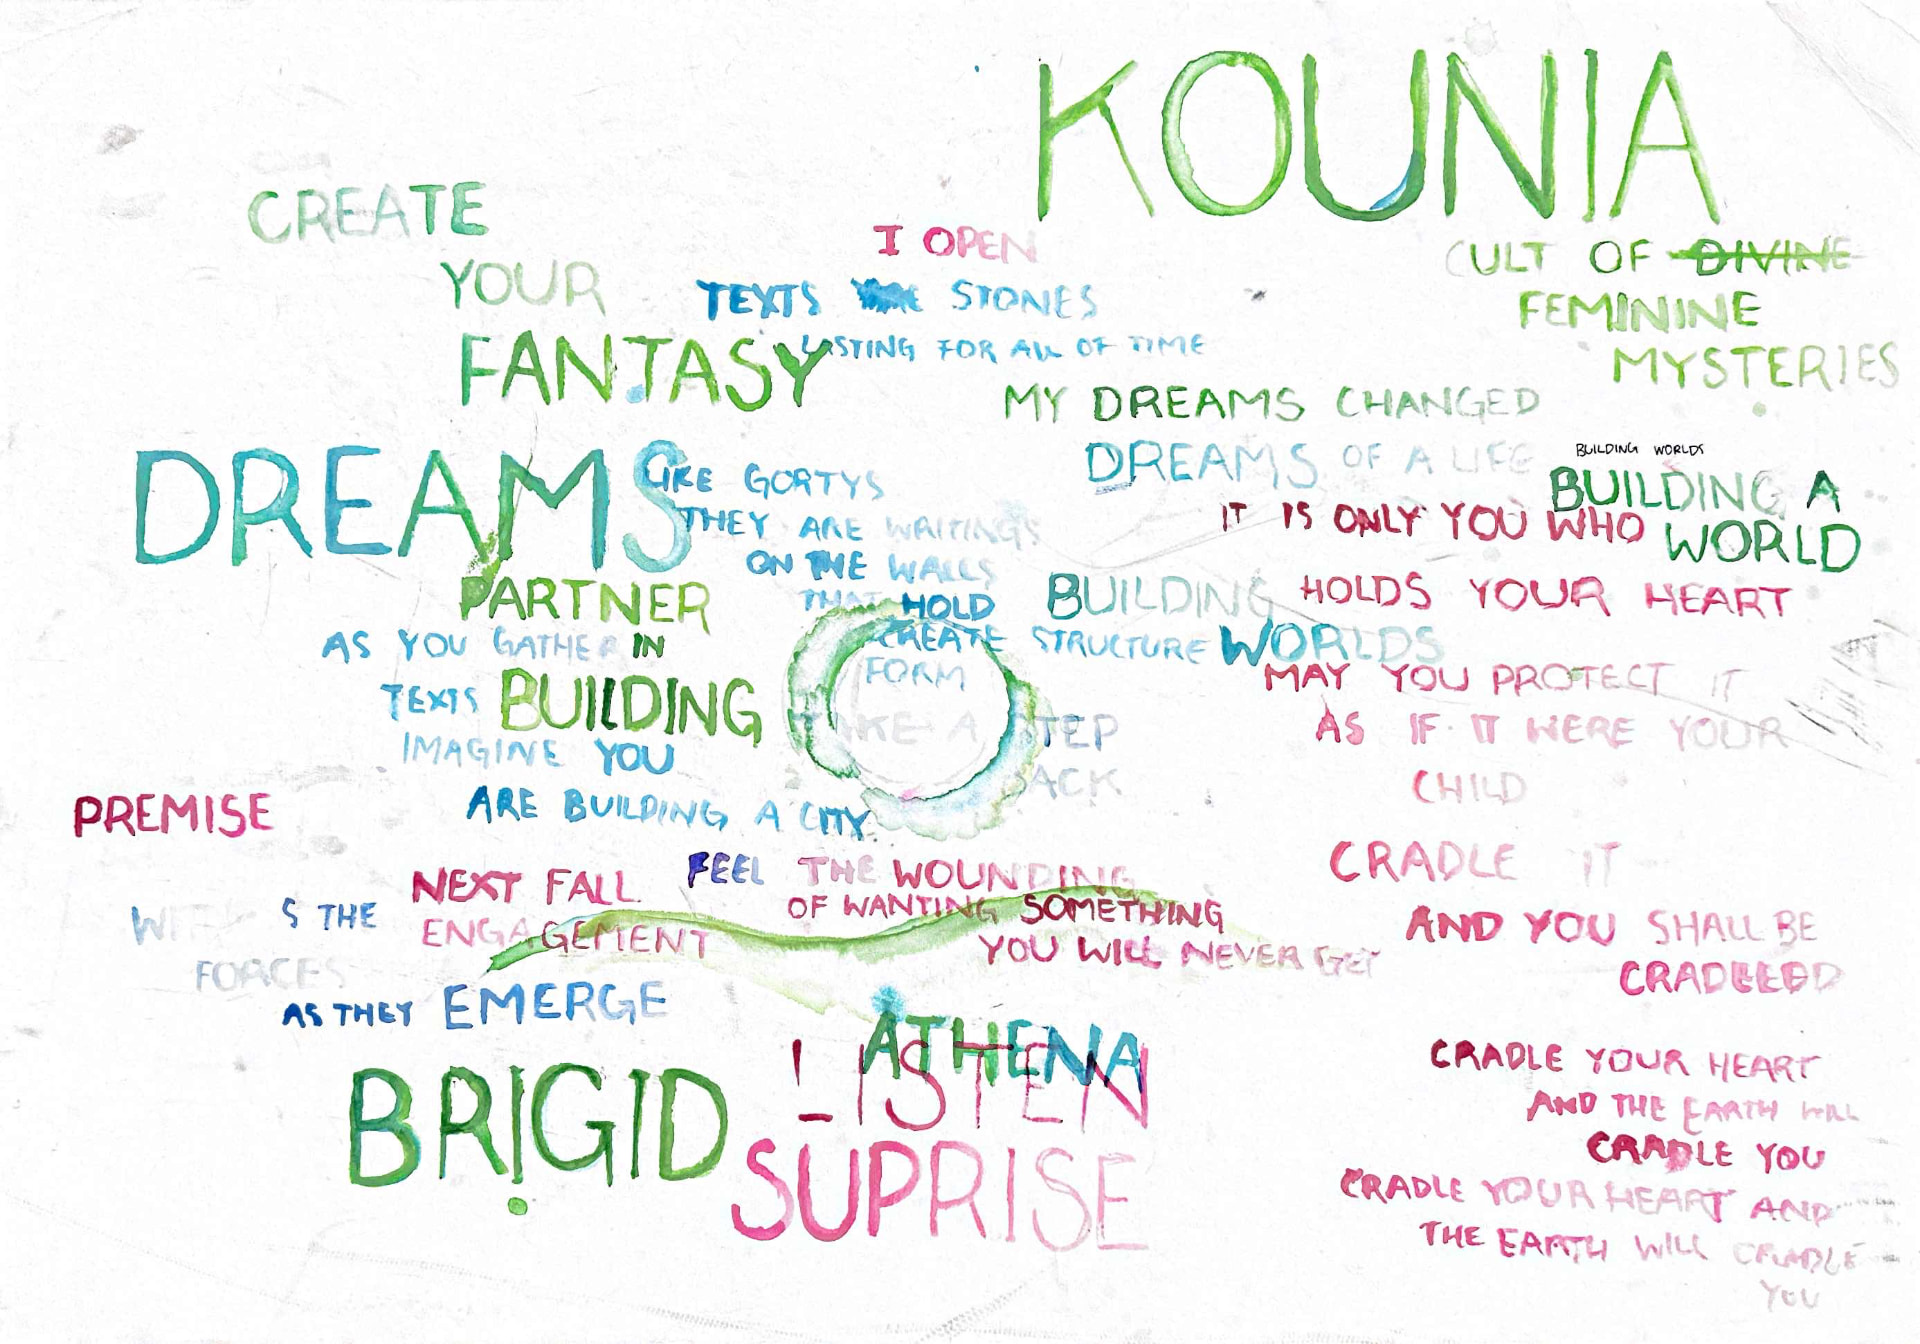 KOUNIA
CULT OF DIVINE
FEMININE
MYSTERIES
CREATE
YOUR
FANTASY
DREAMS
PARTNER
IN
BUILDING
I OPEN
TEXTS STONES
LASTING FOR ALL OF TIME
LIKE GORTYS
THEY ARE WRITINGS
ON THE WALLS
THAT HOLD
CREATE STRUCTURE
FORM
TAKE A STEP
BACK
MY DREAMS CHANGED
DREAMS OF A LIFE
BUILDING WORLDS
BUILDING A
WORLD
BUILDING
WORLDS
IT IS ONLY YOU WHO
HOLDS YOUR HEART
MAY YOU PROTECT IT
AS IF IT WERE YOUR
CHILD
CRADLE IT
AND YOU SHALL BE
CRADLEED
CRADLE YOUR HEART
AND THE EARTH WILL
CRADLE YOU
CRADLE YOUR HEART AND
THE EARTH WILL CRADLE
YOU
AS YOU GATHER
TEXTS
IMAGINE YOU
ARE BUILDING A CITY
PREMISE
NEXT FALL
ENGAGEMENT
FEEL THE WOUNDING
OF WANTING SOMETHING
YOU WILL NEVER GET
S THE
FORCES
AS THEY EMERGE
BRIGID
ATHENA
LISTEN
SUPRISE